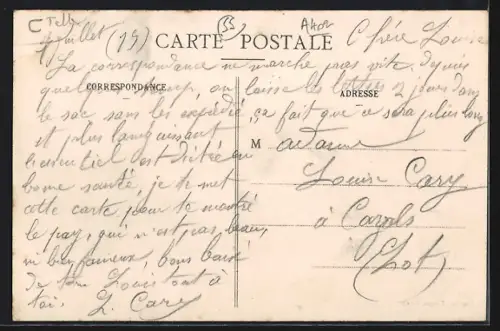 C
7 Juillet (15) 55
CARTE POSTALE
Chère Louise
La correspondance ne marche pas vite. Depuis
quelque temps, on laisse les lettres 2 jours dans
CORRESPONDANCE
ADRESSE
le sac sans les expédier
ça fait que ce sera plus long
et plus languissant
l'essentiel est d'être en
bonne santé, je te met
cette carte pour te montré
le pay, qui n'est pas beau,
ni bien fameux, bons baisé
de ton Louis tout à
toi. L. Cary
M adame
Louise Cary
à
(Lot)